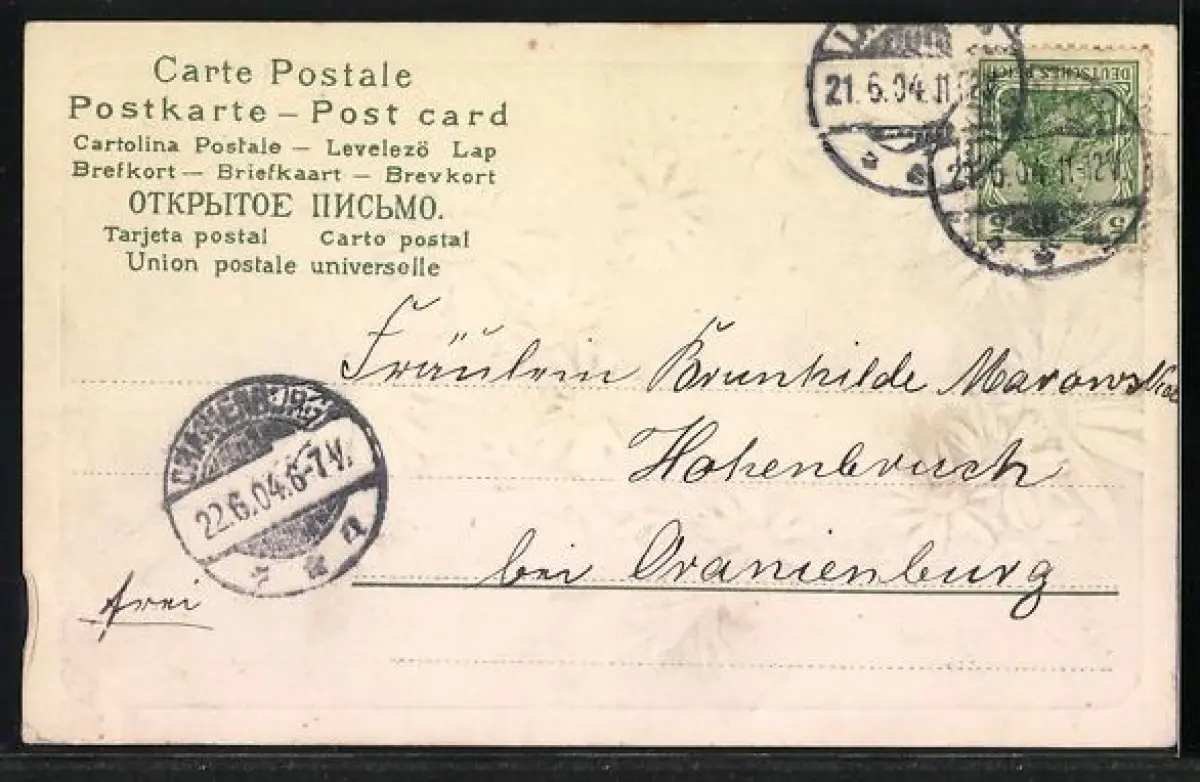 Carte Postale
Postkarte – Post card
Cartolina Postale – Levelező Lap
Brefkort – Briefkaart – Brevkort
ОТКРЫТОЕ ПИСЬМО.
Tarjeta postal Carto postal
Union postale universelle
21.6.04.11-12V.
21.6.04.11-12V.
DEUTSCHES REICH
5 5
Fräulein Brunhilde
Hohenbruch
bei Oranienburg
ORANIENBURG
22.6.04.6-7V.
frei